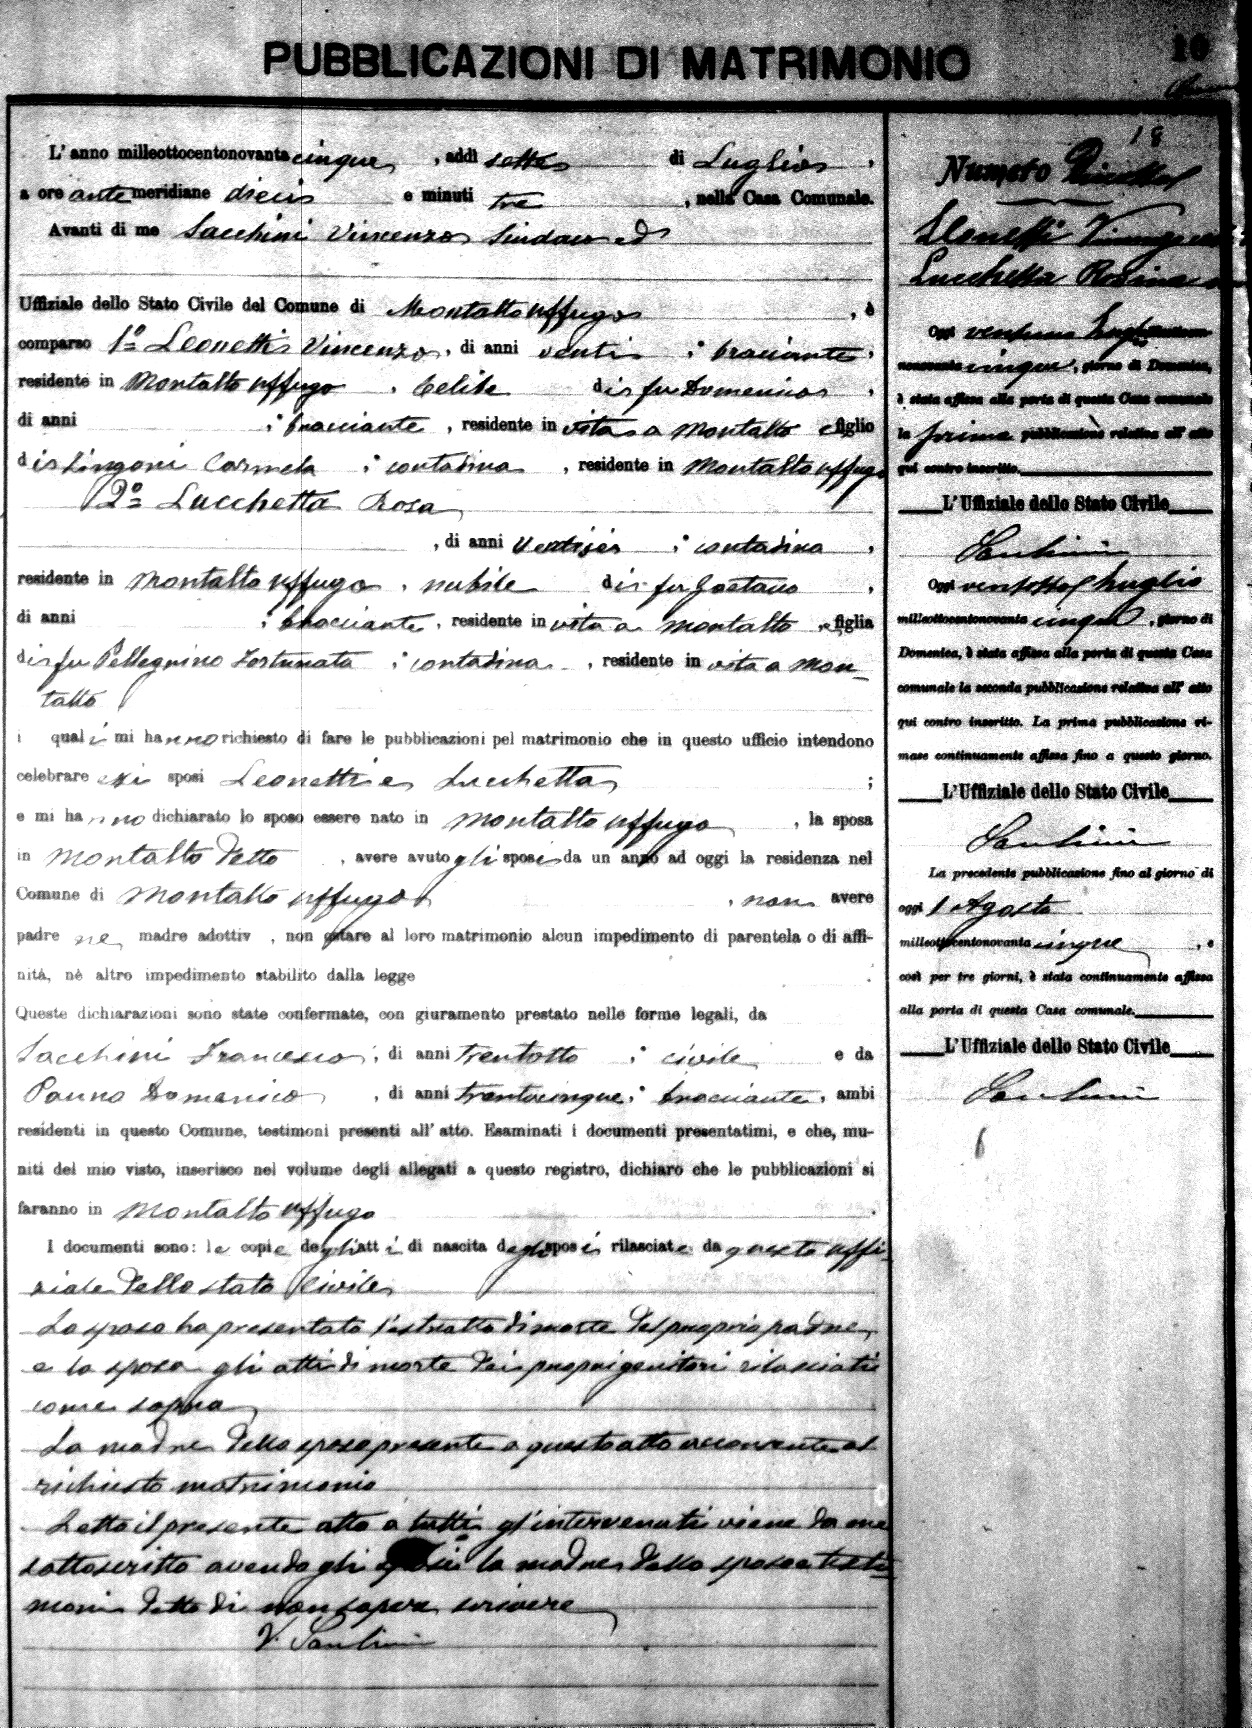 PUBBLICAZIONI DI MATRIMONIO
10
L'anno milleottocentonovanta cinque, addì sette di Luglio,
a ore antemeridiane dieci e minuti tre, nella Casa Comunale.
Avanti di me Sacchini Vincenzo Sindaco ed
Uffiziale dello Stato Civile del Comune di Montalto Uffugo, è
comparso 1º Leonetti Vincenzo, di anni venti; bracciante,
residente in Montalto Uffugo, celibe di fu Domenico,
di anni ; bracciante, residente in vita a Montalto e figlio
di Lingoni Carmela; contadina, residente in Montalto Uffugo
2º Lucchetta Rosa
, di anni ventisei; contadina,
residente in Montalto Uffugo, nubile di fu Gaetano,
di anni ; bracciante, residente in vita a Montalto, e figlia
di fu Pellegrino Fortunata; contadina, residente in vita a Mon-
talto
i quali mi hanno richiesto di fare le pubblicazioni pel matrimonio che in questo ufficio intendono
celebrare essi sposi Leonetti e Lucchetta;
e mi hanno dichiarato lo sposo essere nato in Montalto Uffugo, la sposa
in Montalto detto, avere avuto gli sposi da un anno ad oggi la residenza nel
Comune di Montalto Uffugo, non avere
padre ne madre adottiv , non ostare al loro matrimonio alcun impedimento di parentela o di affi-
nità, nè altro impedimento stabilito dalla legge.
Queste dichiarazioni sono state confermate, con giuramento prestato nelle forme legali, da
Sacchini Francesco, di anni trentotto; civile e da
Panno Domenico, di anni trentacinque; bracciante, ambi
residenti in questo Comune, testimoni presenti all'atto. Esaminati i documenti presentatimi, e che, mu-
niti del mio visto, inserisco nel volume degli allegati a questo registro, dichiaro che le pubblicazioni si
faranno in Montalto Uffugo.
I documenti sono: le copie degli atti di nascita degli sposi rilasciate da questo uffi-
ziale dello stato Civile
Lo sposo ha presentato l'estratto di morte del proprio padre,
e la sposa gli atti di morte dei propri genitori rilasciati
come sopra
La madre dello sposo presente a questo atto acconsente al
richiesto matrimonio
Letto il presente atto a tutti gl'intervenuti viene da me
sottoscritto avendo gli sposi la madre dello sposo e testi-
moni detto di non sapere scrivere
V. Sacchini
18
Numero
Leonetti Vincenzo
Lucchetta Rosina
Oggi ventuno Luglio
novanta cinque, giorno di Domenica,
è stata affissa alla porta di questa Casa comunale
la prima pubblicazione relativa all'atto
qui contro inscritto.
L'Uffiziale dello Stato Civile
Sacchini
Oggi ventotto Luglio
milleottocentonovanta cinque, giorno di
Domenica, è stata affissa alla porta di questa Casa
comunale la seconda pubblicazione relativa all'atto
qui contro inscritto. La prima pubblicazione ri-
mase continuamente affissa fino a questo giorno.
L'Uffiziale dello Stato Civile
Sacchini
La precedente pubblicazione fino al giorno di
oggi 1 Agosto
milleottocentonovanta cinque, e
così per tre giorni, è stata continuamente affissa
alla porta di questa Casa comunale.
L'Uffiziale dello Stato Civile
Sacchini